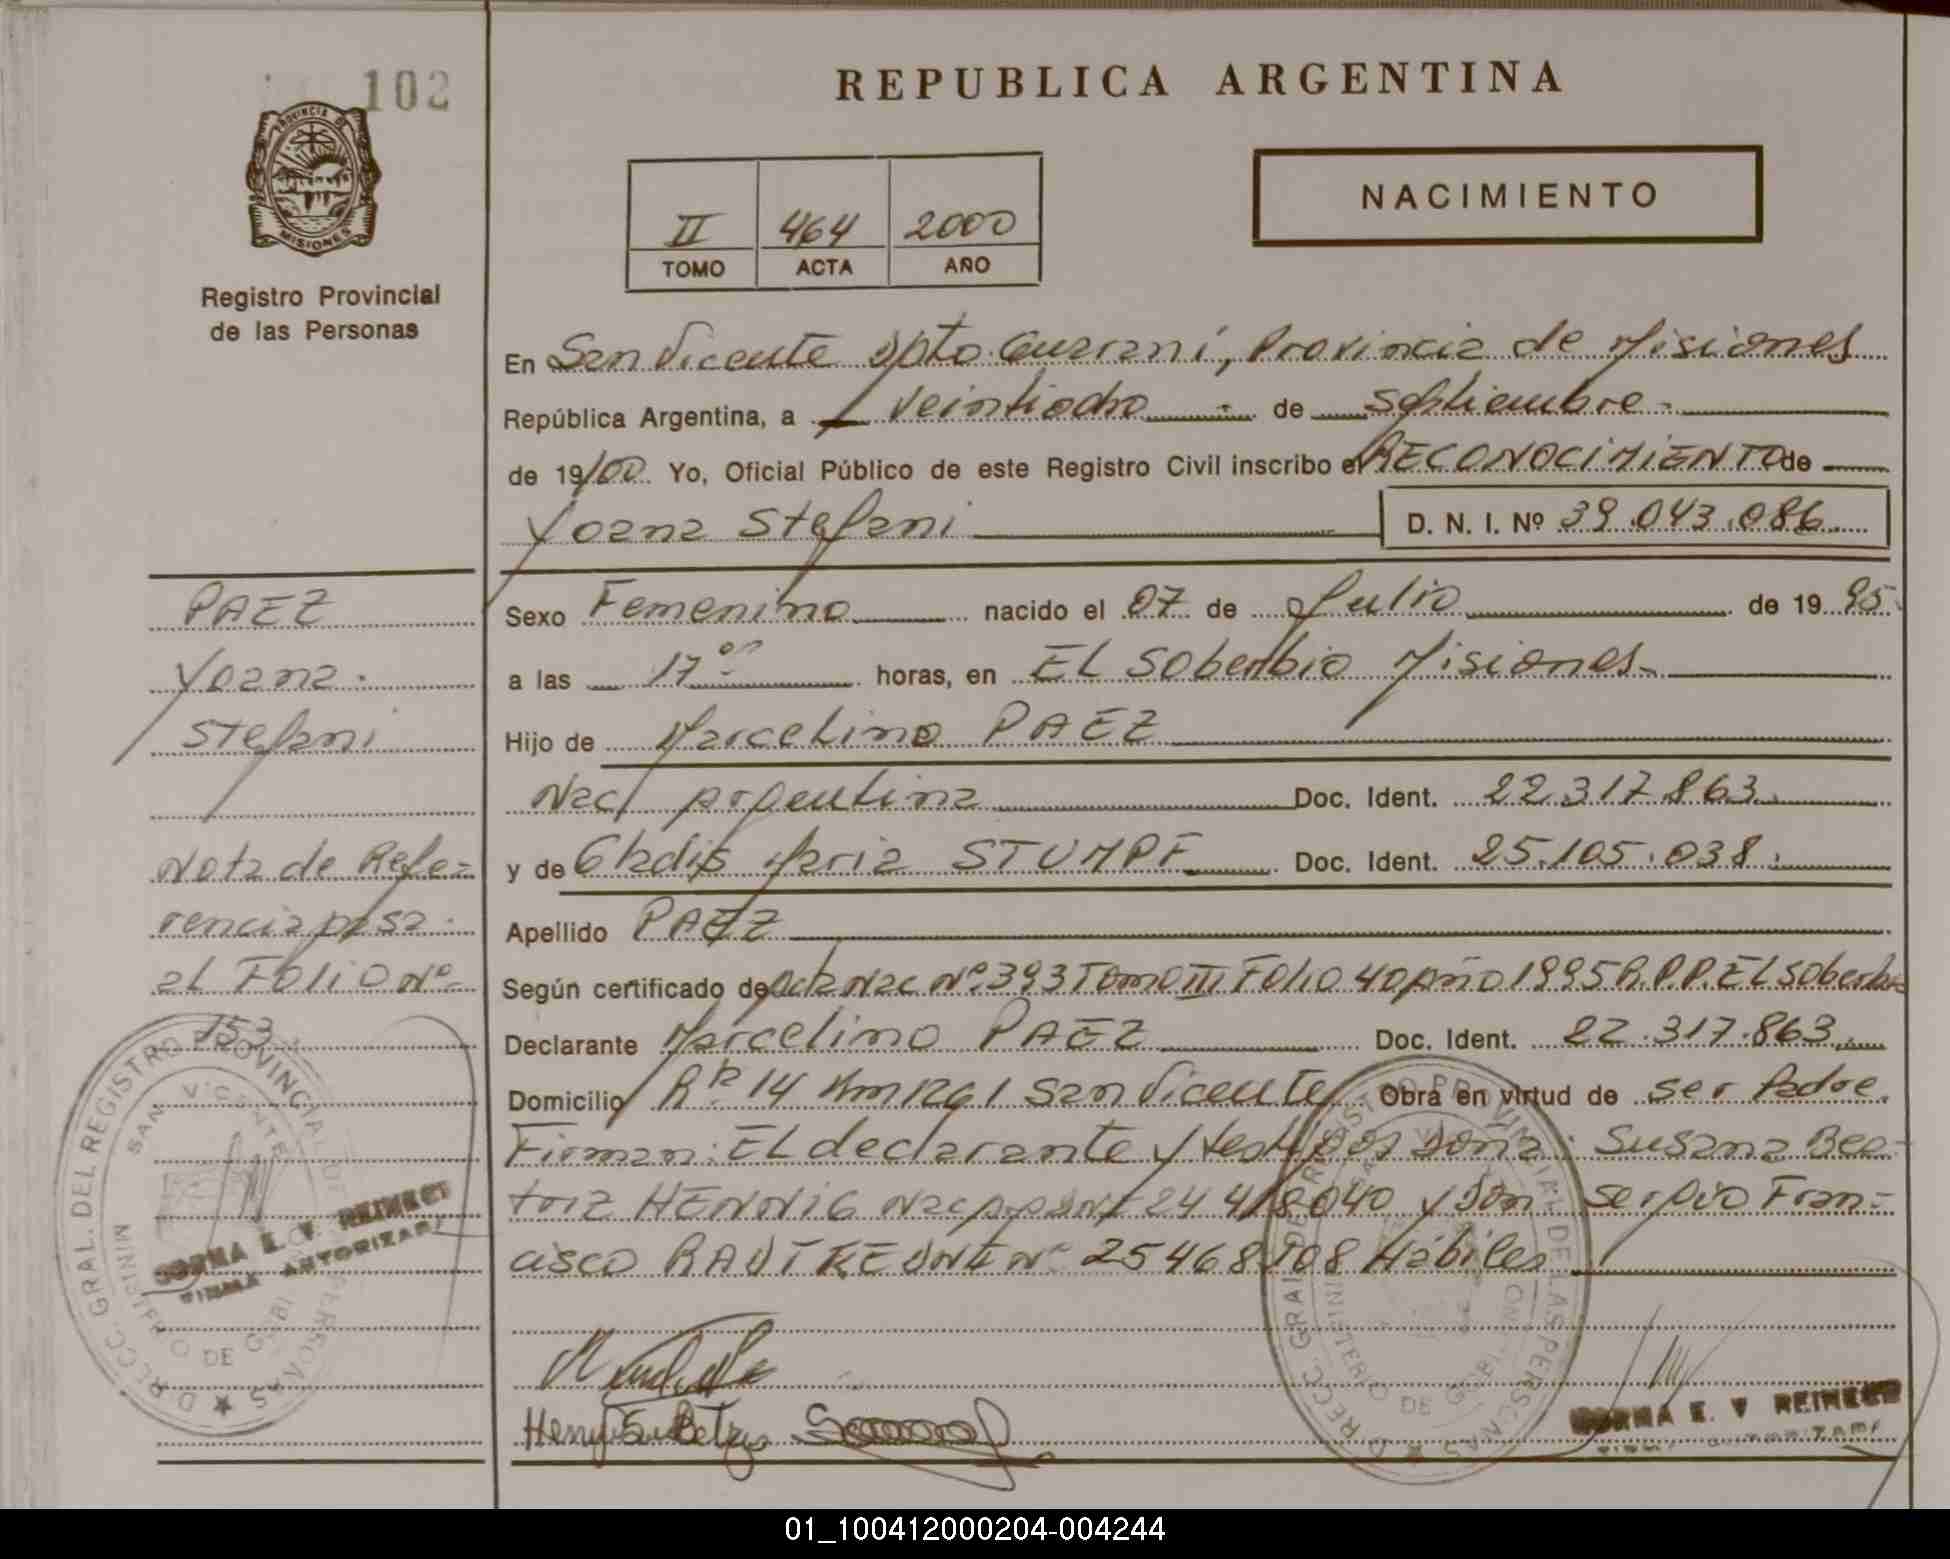 102
PROVINCIA DE
MISIONES
Registro Provincial
de las Personas
REPUBLICA ARGENTINA
II 464 2000
TOMO ACTA AÑO
NACIMIENTO
En San Vicente Dpto. Guaraní, Provincia de Misiones
República Argentina, a veintiocho de septiembre
de 19/00 Yo, Oficial Público de este Registro Civil inscribo el RECONOCIMIENTO de
Yoana Stefani D. N. I. Nº 39.043.086
Sexo Femenino nacido el 07 de Julio de 1995
a las 17 horas, en EL Soberbio Misiones
Hijo de Marcelino PAEZ
Nac/ Argentina Doc. Ident. 22.317.863
y de Gladis Maria STUMPF Doc. Ident. 25.105.038
Apellido PAEZ
Según certificado de Acta Nac Nº 393 Tomo III Folio 40 Año 1995 R.P.P. EL Soberbio
Declarante Marcelino PAEZ Doc. Ident. 22.317.863
Domicilio 14 Km 1261 San Vicente Obra en virtud de ser Padre.
Firman: EL declarante y testigos Doña: Susana Bea-
triz HENNIG 24 418040 y Don Sergio Fran-
cisco 25468108 Hábiles
PAEZ
Yoana
Stefani
Nota de Refe-
rencia pasa
al FOLIO Nº
153
DIRECC. GRAL. DEL REGISTRO PROVINCIAL DE LAS PERSONAS
SAN VICENTE
MINISTERIO DE GOBI
NORMA E. V. REINECK
FIRMA AUTORIZADA
DIRECC. GRAL. DEL REGISTRO PROVINCIAL DE LAS PERSONAS
MINISTERIO DE GOBI
NORMA E. V REINECK
01_100412000204-004244